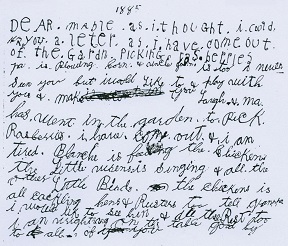 1885
DEAR. mable. as. i. thought. i. card.
you. a. leter. as. i. have. come out
of. the. Gardn. PICKING. rasberries
pa. is. Plowing. corn. & uncle is. too. i never
seen you but would like to play with
you & make you laugh. & ma.
has. went. in the garden. to. PICK
Rasberries. i. have. come. out. & i am
tired. Blanche is feeding the chickens
the Little is singing & all the
other Little Birds. the chickens is
all cackling hens & Rusters too tell
i would like to see him & all the rest too
to all of you good by